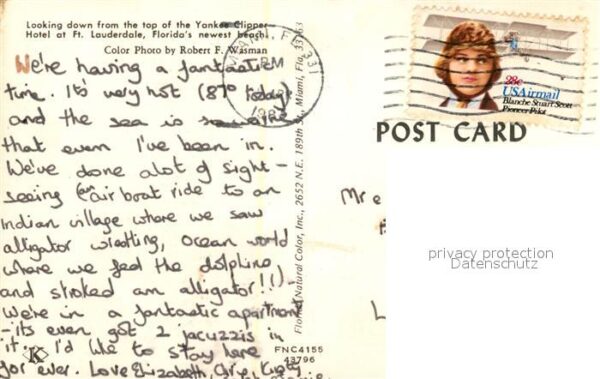 Looking down from the top of the Yankee Clipper
Hotel at Ft. Lauderdale, Florida's newest beach.
Color Photo by Robert F. Wasman
We're having a fantastic
time. It's very hot (87° today)
and the sea is so
that even I've been in.
We've done alot of sight-
seeing (an air boat ride to an
Indian village where we saw
alligator wrestling, ocean world
where we fed the dolphins
and stroked an alligator!!)-
We're in a fantastic apartment
-its even got 2 jacuzzis in
it. I'd like to stay here
for ever. Love Elizabeth,
K
FNC4155
43796
Florida Natural Color, Inc., 2652 N.E. 189th St., Miami, Fla. 33163
MIAMI, FL 331
PM
28c
USAirmail
Blanche Stuart Scott
Pioneer Pilot
POST CARD
Mr
privacy protection
Datenschutz